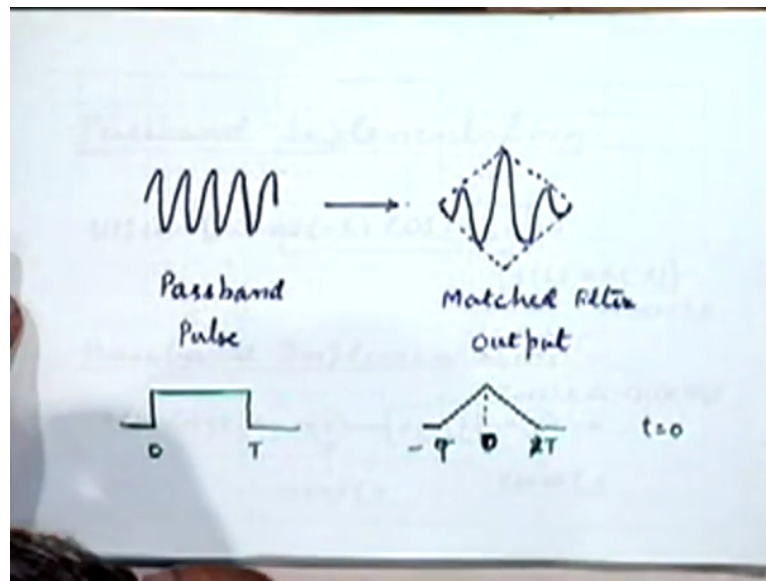 Passband
Pulse
Matched Filter
output
0 T
-T 0 T
t=0